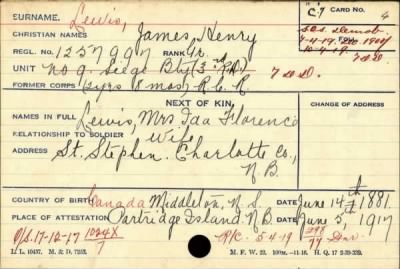 SURNAME. Lewis, "C7" CARD No. 4
CHRISTIAN NAMES James Henry SOS. Demob.
REGL. No. 1257997 RANK Gr.
UNIT No 9. Siege Bty (3rd P.D.) 7 D.D.
FORMER CORPS (2yrs 8 mos) R.C.R.
NEXT OF KIN. CHANGE OF ADDRESS
NAMES IN FULL Lewis, Mrs Ida Florence
RELATIONSHIP TO SOLDIER Wife
ADDRESS St. Stephen, Charlotte Co.,
N.B.
COUNTRY OF BIRTH Canada Middleton, N.S. DATE June 14th 1881
PLACE OF ATTESTATION Partridge Island, N.B. DATE June 5, 1917
O/S. 17-12-17 1024X/7 R/C. 5-4-19
L. L. 10437. M. & D. 7252. M. F. W. 22. H. Q. 17-39-339.